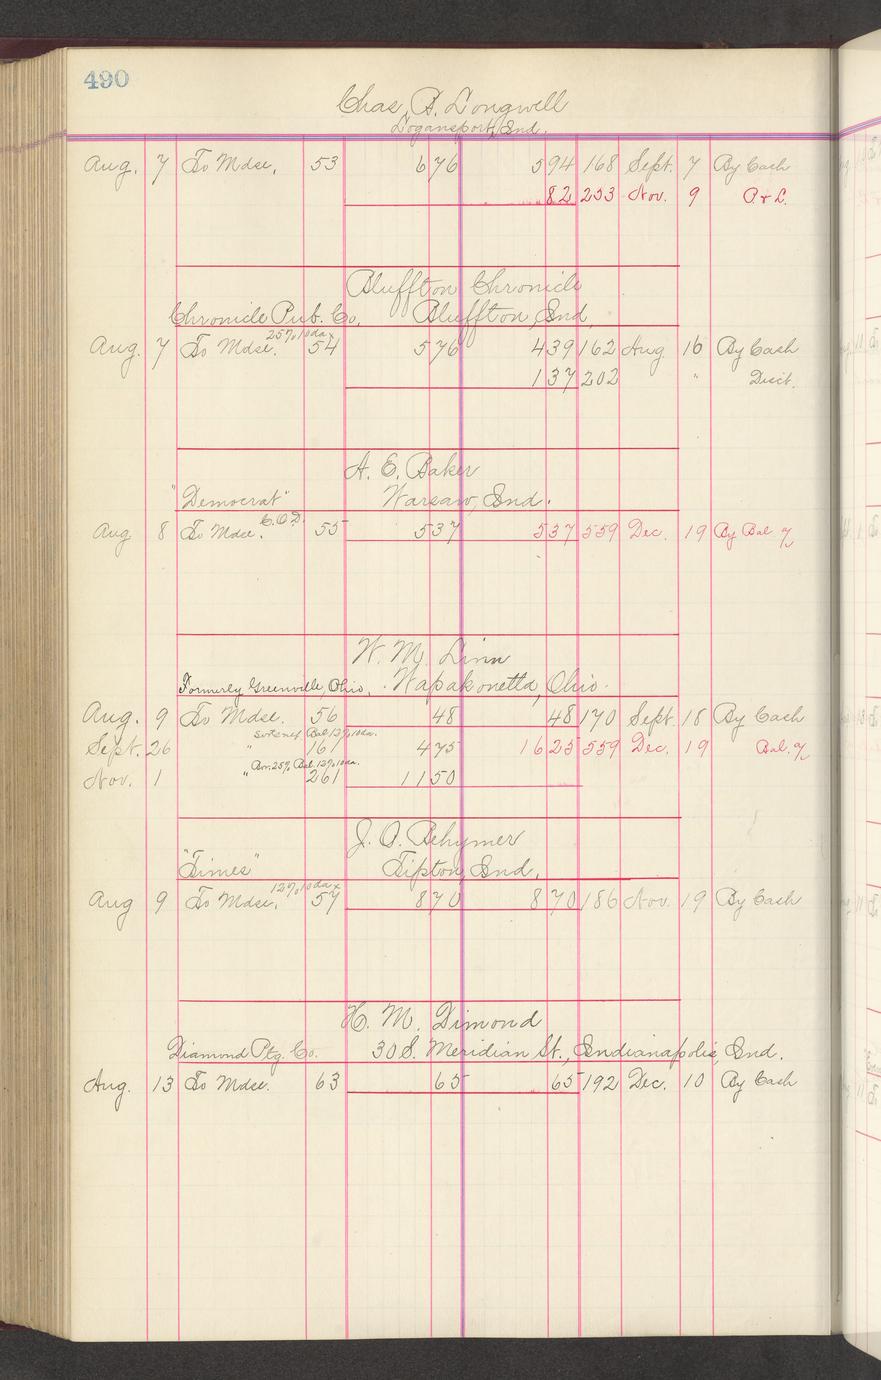 490
Chas. B. Longwell
Logansport, Ind.
Aug. 7 To Mdse. 53 6 76 5 94 168 Sept. 7 By Cash
82 253 Nov. 9 P. & L.
Bluffton Chronicle
Chronicle Pub. Co. Bluffton, Ind.
25% 10 da
Aug. 7 To Mdse. 54 5 76 4 39 162 Aug 16 By Cash
1 37 202 " Disct.
A. E. Baker
"Democrat" Warsaw, Ind.
Aug 8 To Mdse. C.O.D. 55 5 37 5 37 559 Dec. 19 By Bal. a/c
W. M. Linn
Formerly Greenville, Ohio, Wapakonetta, Ohio.
Aug. 9 To Mdse. 56 48 48 170 Sept. 18 By Cash
Bal. 12% 10 da.
Sept. 26 " 161 4 75 16 25 559 Dec. 19 Bal. a/c
25% Bal. 12% 10 da.
Nov. 1 " 261 11 50
J. O. Behymer
"Times" Tipton, Ind.
12% 10 da
Aug 9 To Mdse. 57 8 70 8 70 186 Nov. 19 By Cash
H. M. Dimond
Diamond Ptg. Co. 30 S. Meridian St., Indianapolis, Ind.
Aug. 13 To Mdse. 63 65 65 192 Dec. 10 By Cash